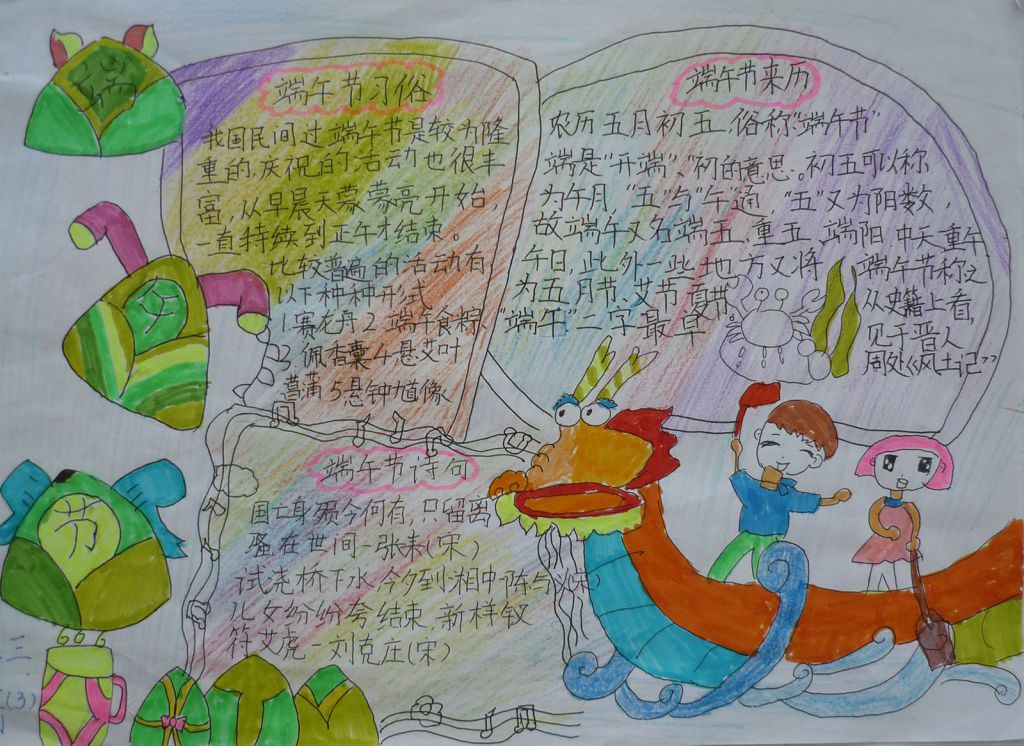 端
午
节
端午节习俗
我国民间过端午节是较为隆
重的,庆祝的活动也很丰
富,从早晨天蒙蒙亮开始,
一直持续到正午才结束。
比较普遍的活动有
以下种种形式
1.赛龙舟2.端午食粽、
3.佩香囊4悬艾叶
菖蒲5悬钟馗像
端午节来历
农历五月初五,俗称"端午节"
端是"开端"、"初的意思。初五可以称
为午月,"五"与"午"通 "五"又为阳数,
故端午又名端五、重五、端阳、中天、重午
午日,此外一些地方又将 端午节称之
为五月节、艾节、夏节 从史籍上看,
"端午"二字最早 见于晋人
周处《风土记》
端午节诗句
国亡身殒今何有,只留离
骚在世间-张耒(宋)
试浇桥下水,今夕到湘中-陈与义(宋)
儿女纷纷夸结束,新样钗
符艾虎-刘克庄(宋)
三
(3)